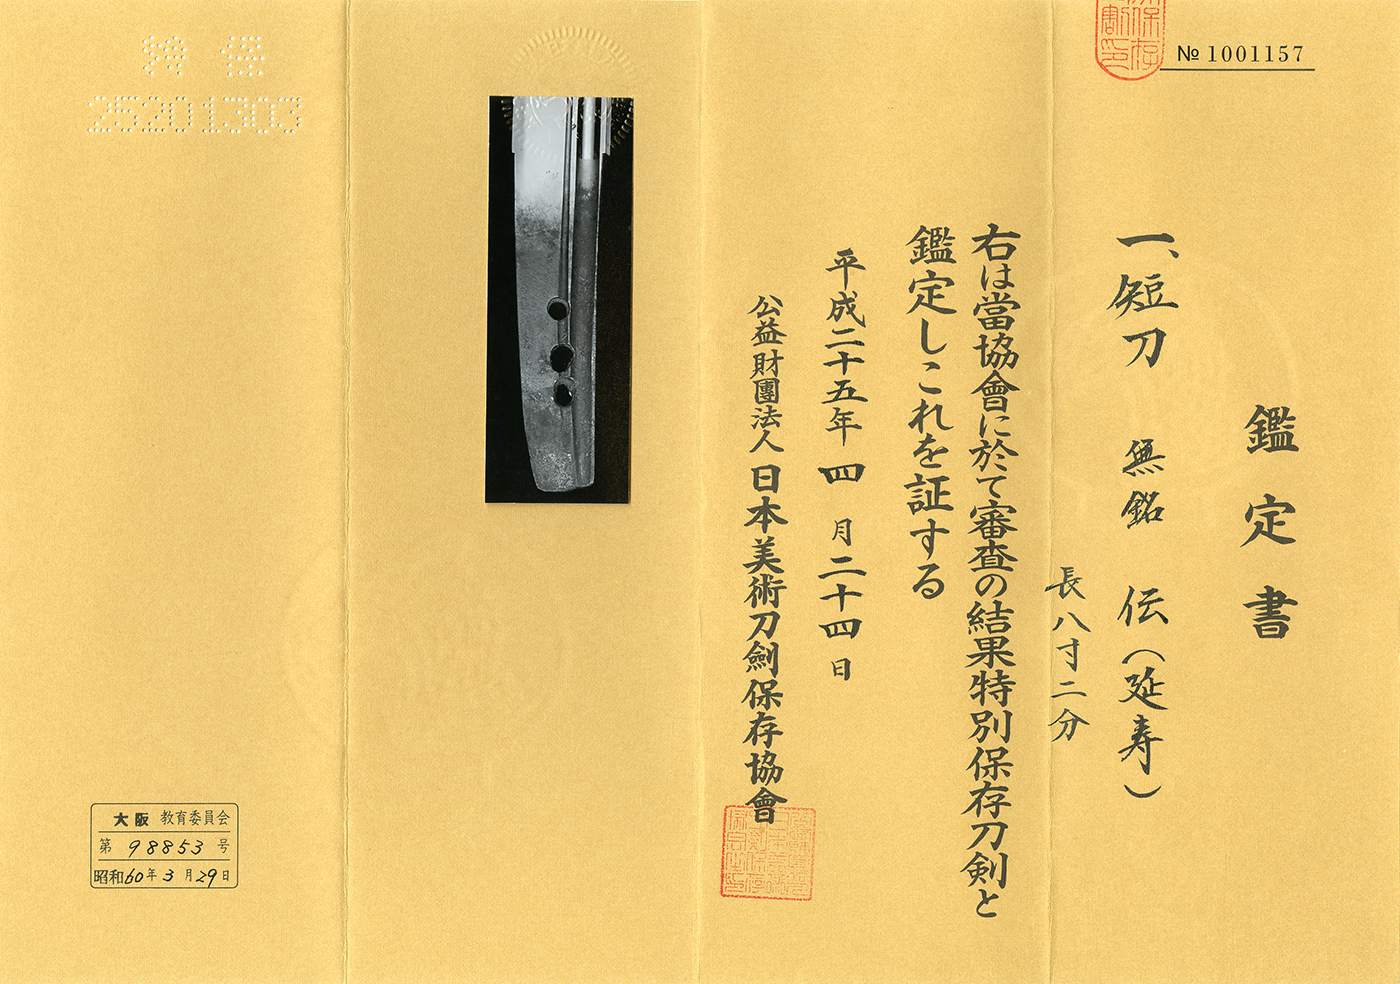 № 1001157
鑑定書
一、短刀 無銘 伝(延寿)
長八寸二分
右は當協會に於て審査の結果特別保存刀剣と
鑑定しこれを証する
平成二十五年 四 月 二十四 日
公益財團法人 日本美術刀劍保存協會
特 保
25201303
大阪 教育委員会
第 98853 号
昭和60年3月29日